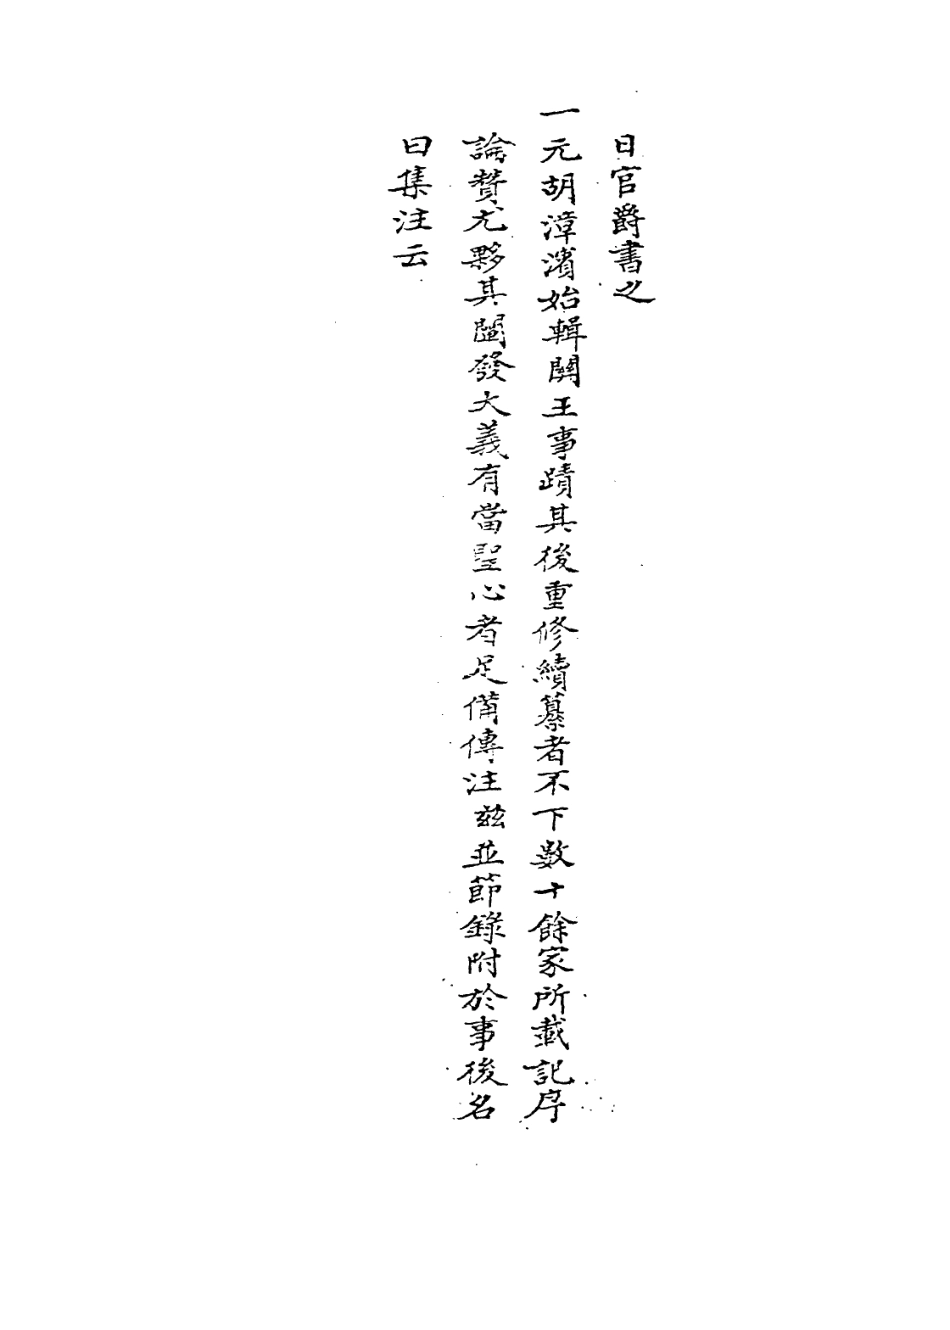 日官爵書之
一元胡漳濱始輯關王事蹟其後重修續纂者不下數十餘家所載記序
論贊尤夥其闡發大義有當聖心者足備傳注茲並節錄附於事後名
曰集注云